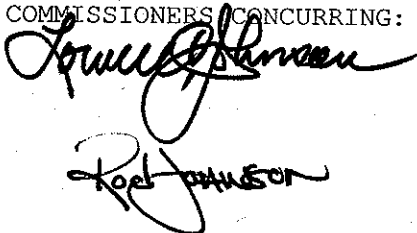 COMMISSIONERS CONCURRING:
Lowell Johnson
Rod Johnson